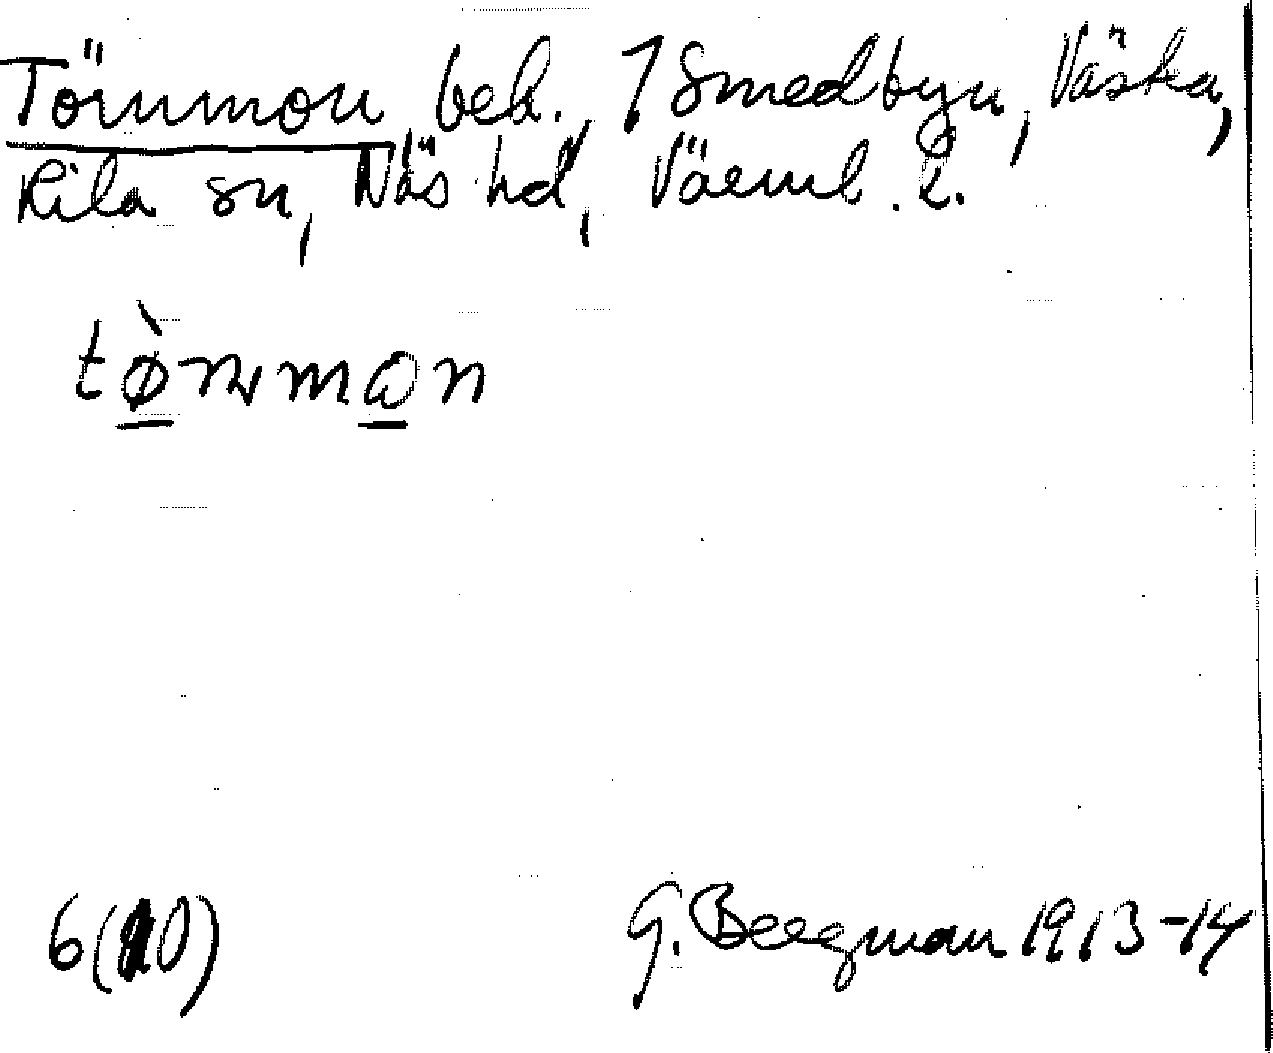 Törnmon beb. 7 Smedbyn, Västra,
Kila sn, Näs hd, Värml. l.
tø̀rnmɑn
6(10)
G. Bergman 1913-14